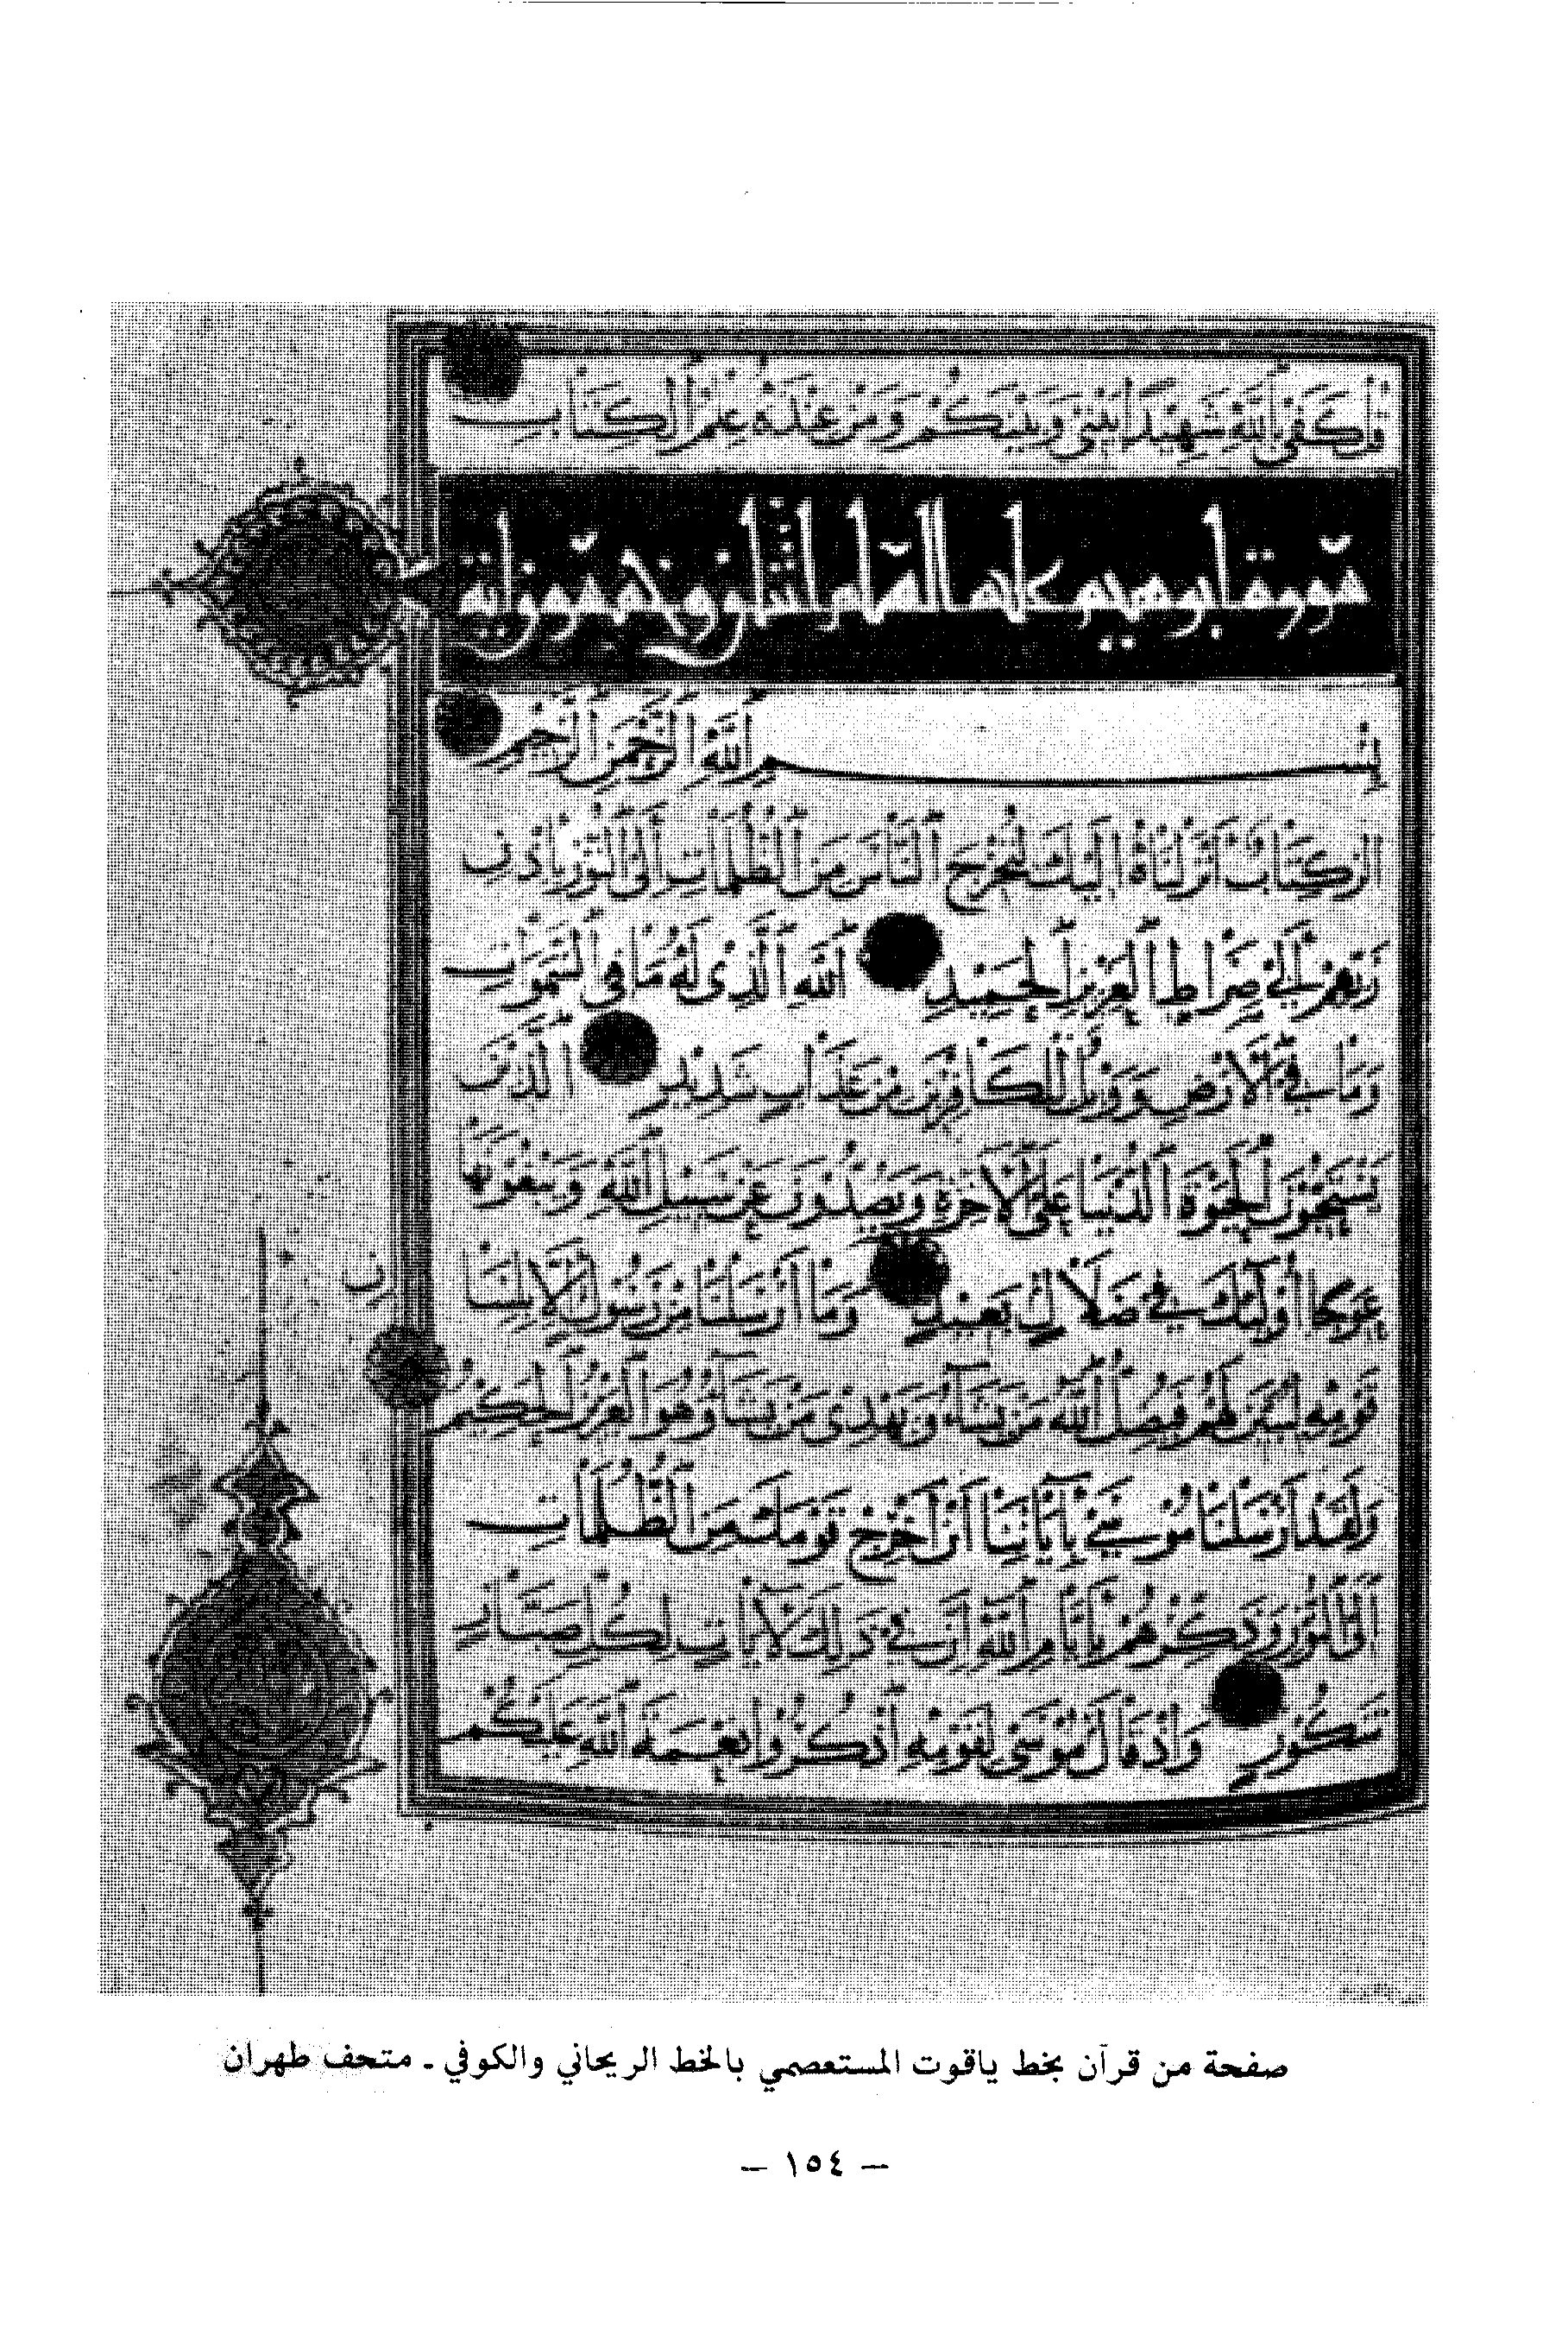 قُلْ كَفَىٰ بِاللَّهِ شَهِيدًا بَيْنِي وَبَيْنَكُمْ وَمَنْ عِنْدَهُ عِلْمُ الْكِتَابِ
سورة إبرهيم عليه السلام اثنان وخمسون آية
بِسْمِ اللَّهِ الرَّحْمَنِ الرَّحِيمِ
الر كِتَابٌ أَنْزَلْنَاهُ إِلَيْكَ لِتُخْرِجَ النَّاسَ مِنَ الظُّلُمَاتِ إِلَى النُّورِ بِإِذْنِ
رَبِّهِمْ إِلَى صِرَاطِ الْعَزِيزِ الْحَمِيدِ اللَّهِ الَّذِي لَهُ مَا فِي السَّمَوَاتِ
وَمَا فِي الْأَرْضِ وَوَيْلٌ لِلْكَافِرِينَ مِنْ عَذَابٍ شَدِيدٍ الَّذِينَ
يَسْتَحِبُّونَ الْحَيَوةَ الدُّنْيَا عَلَى الْآخِرَةِ وَيَصُدُّونَ عَنْ سَبِيلِ اللَّهِ وَيَبْغُونَهَا
عِوَجًا أُولَئِكَ فِي ضَلَالٍ بَعِيدٍ وَمَا أَرْسَلْنَا مِنْ رَسُولٍ إِلَّا بِلِسَانِ
قَوْمِهِ لِيُبَيِّنَ لَهُمْ فَيُضِلُّ اللَّهُ مَنْ يَشَاءُ وَيَهْدِي مَنْ يَشَاءُ وَهُوَ الْعَزِيزُ الْحَكِيمُ
وَلَقَدْ أَرْسَلْنَا مُوسَى بِآيَاتِنَا أَنْ أَخْرِجْ قَوْمَكَ مِنَ الظُّلُمَاتِ
إِلَى النُّورِ وَذَكِّرْهُمْ بِأَيَّامِ اللَّهِ إِنَّ فِي ذَلِكَ لَآيَاتٍ لِكُلِّ صَبَّارٍ
شَكُورٍ وَإِذْ قَالَ مُوسَى لِقَوْمِهِ اذْكُرُوا نِعْمَةَ اللَّهِ عَلَيْكُمْ
صفحة من قرآن بخط ياقوت المستعصمي بالخط الريحاني والكوفي - متحف طهران
— ١٥٤ —